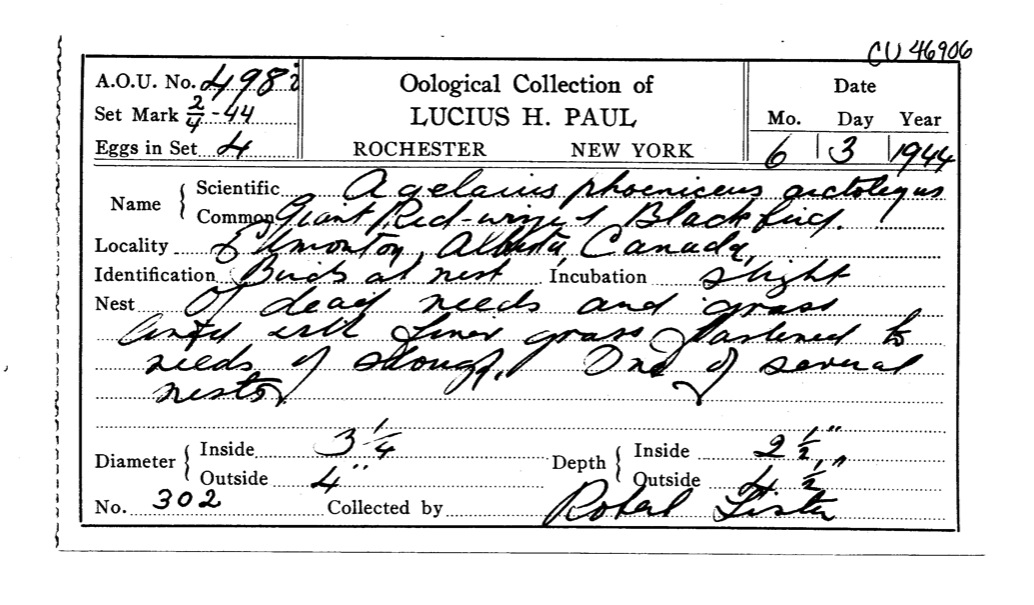 CU 46906
A.O.U. No. 498i
Set Mark 2/4-44
Eggs in Set 4
Oological Collection of
LUCIUS H. PAUL
ROCHESTER NEW YORK
Date
Mo. Day Year
6 3 1944
Name
Scientific Agelaius phoeniceus arctolegus
Common Giant Red-winged Blackbird.
Locality Edmonton, Alberta, Canada,
Identification Birds at nest Incubation slight
Nest Of dead reeds and grass
lined with finer grass fastened to
reeds of slough. One of several
nests.
Diameter
Inside 3 1/4
Outside 4"
Depth
Inside 2 1/2"
Outside 4 1/2"
No. 302 Collected by Robert Lister